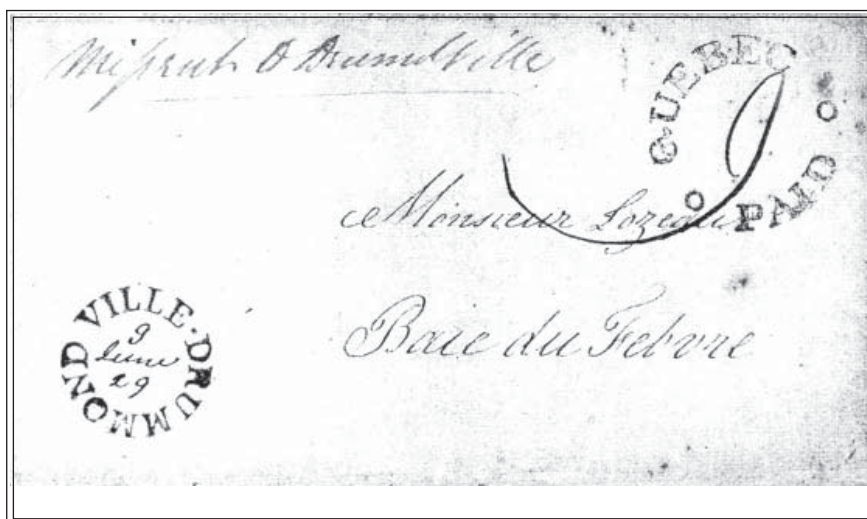 Missent
QUEBEC
9
PAID
Monsieur Lozeau
Baie du Febvre
DRUMMOND VILLE
9
June
29